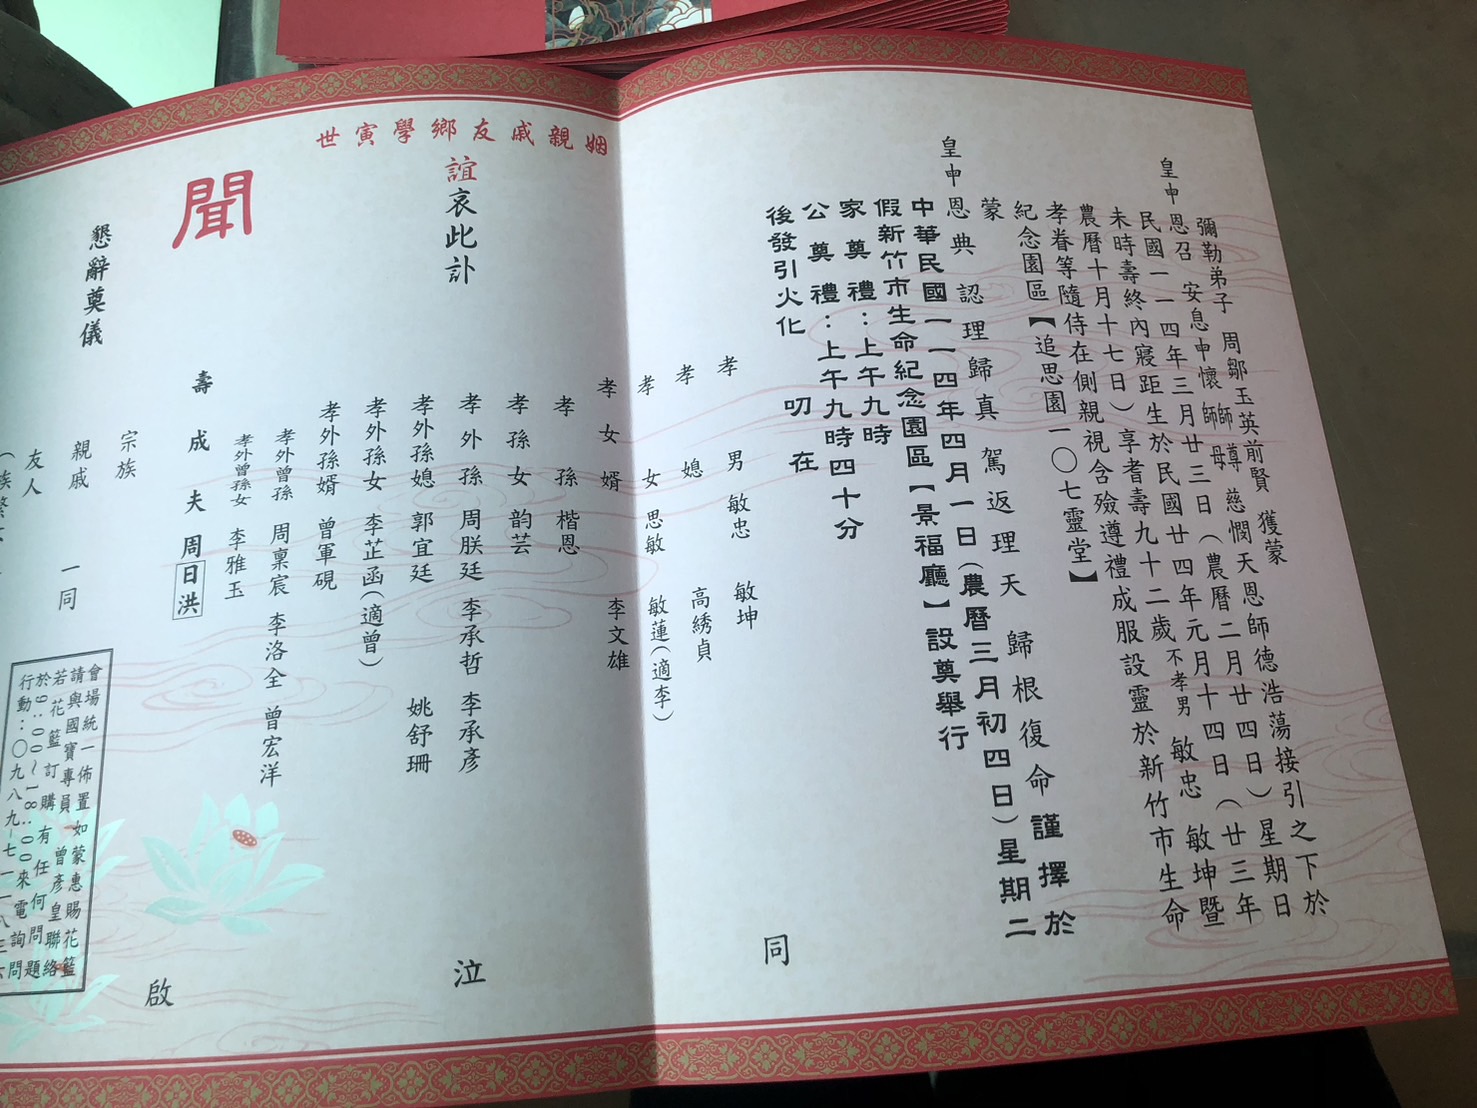 彌勒弟子 周鄒玉英前賢 獲蒙
皇㽕恩召 安息㽕懷 師尊師母 慈憫天恩師德浩蕩接引之下於
民國一一四年三月廿三日（農曆二月廿四日）星期日
未時壽終內寢距生於民國廿四年元月十四日（廿三年
農曆十月十七日）享耆壽九十二歲不孝男 敏忠 敏坤暨
孝眷等隨侍在側親視含殮遵禮成服設靈於新竹市生命
紀念園區【追思園一〇七靈堂】
蒙
皇㽕恩典 認理歸真 駕返理天 歸根復命謹擇於
中華民國一一四年四月一日（農曆三月初四日）星期二
假新竹市生命紀念園區【景福廳】設奠舉行
家奠禮：上午九時
公奠禮：上午九時四十分
後發引火化 叨在
姻親戚友鄉學寅世
誼哀此訃
聞
孝男 敏忠 敏坤
孝媳 高綉貞
孝女 思敏 敏蓮（適李）
孝女婿 李文雄
孝孫 楷恩
孝孫女 韵芸
孝外孫 周朕廷 李承哲 李承彥
孝外孫媳 郭宜廷 姚舒珊
孝外孫女 李芷函（適曾）
孝外孫婿 曾軍硯
孝外曾孫 周稟宸 李洛全 曾宏洋
孝外曾孫女 李雅玉
同
泣
啟
壽成夫 周日洪
懇辭奠儀
宗族
親戚 一同
友人
會場統一佈置如蒙惠賜花籃
請與國寶專員 曾彥皇聯絡
若花籃訂購有任何問題
於9:00~18:00來電詢問
行動：〇九八九-七一一八三